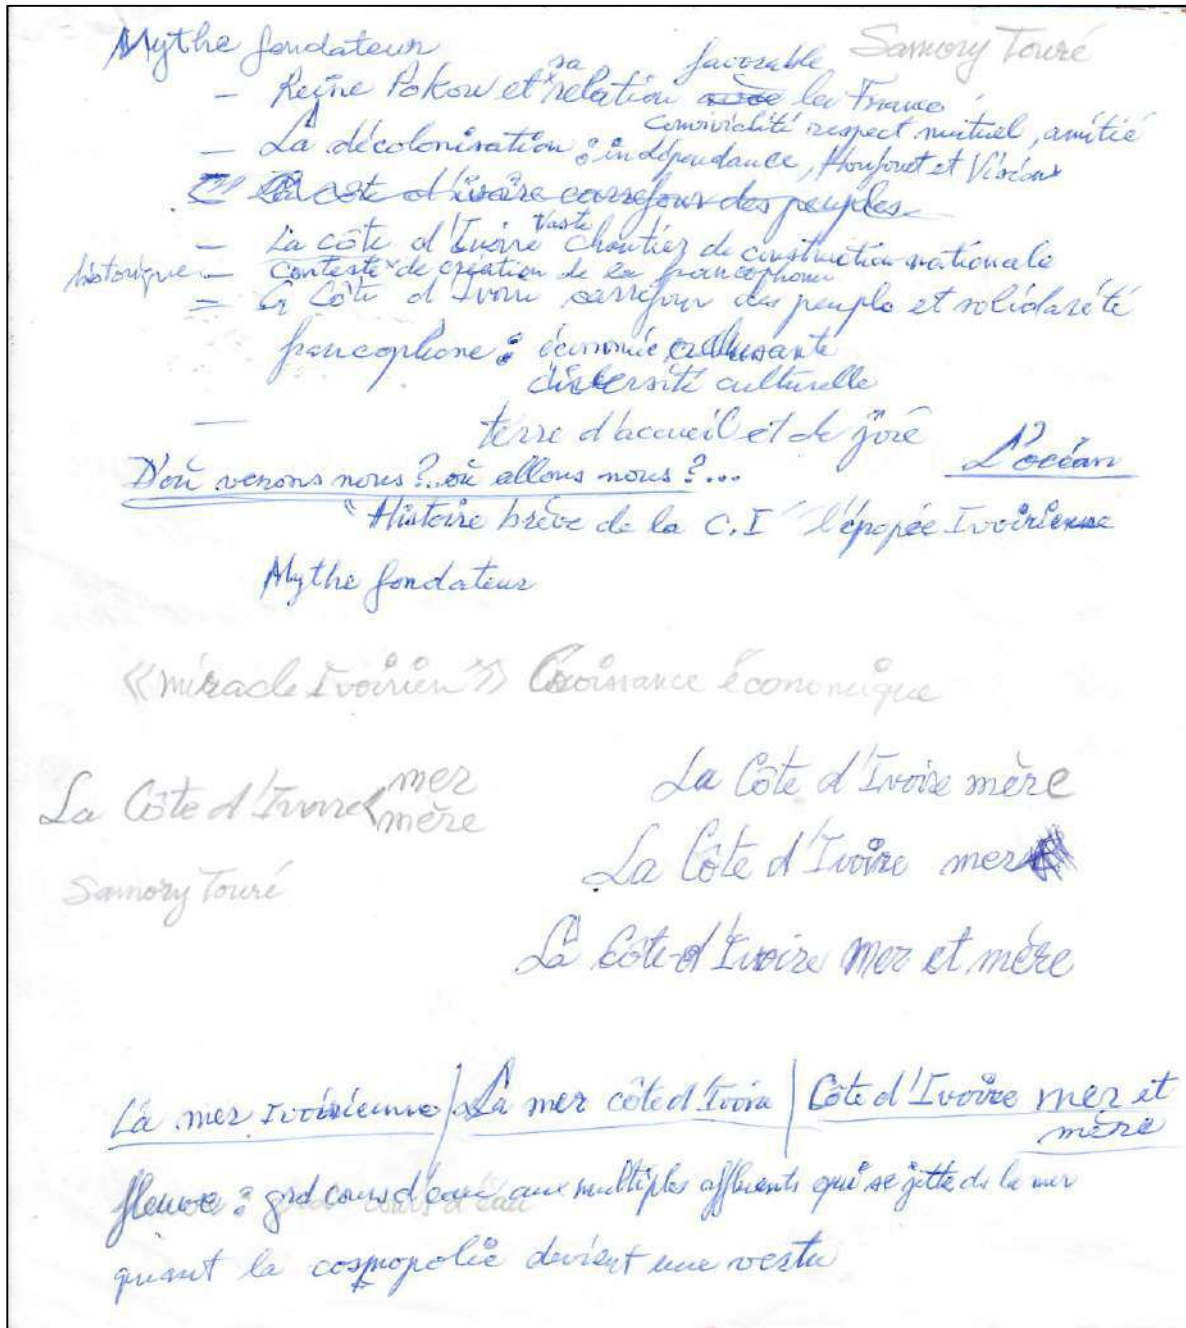 Mythe fondateur
Samory Touré
sa favorable
- Reine Pokou et relation avec la France
convivialité respect mutuel, amitié
- La décolonisation : indépendance, Houfouet et Vision
La cote d'ivoire carrefour des peuples
Vaste
- La côte d'Ivoire chantier de construction nationale
historique - contexte de création de la francophonie
= La Côte d'Ivoire carrefour des peuple et solidarité
francophone : économie
diversité culturelle
- terre d'accueil et de joie
L'océan
D'où venons nous ?..où allons nous ?...
"Histoire brève de la C.I" l'épopée Ivoirienne
Mythe fondateur
«miracle Ivoirien» Croissance économique
La Côte d'Ivoire < mer
mère
La Côte d'Ivoire mère
La Côte d'Ivoire mer
Samory Touré
La Côte d'Ivoire mer et mère
La mer Ivoirienne / La mer côte d'Ivoire / Côte d'Ivoire mer et
mère
fleuve : grd cours d'eau aux multiples affluents qui se jette ds la mer
quant la cosmopolie devient une vertu